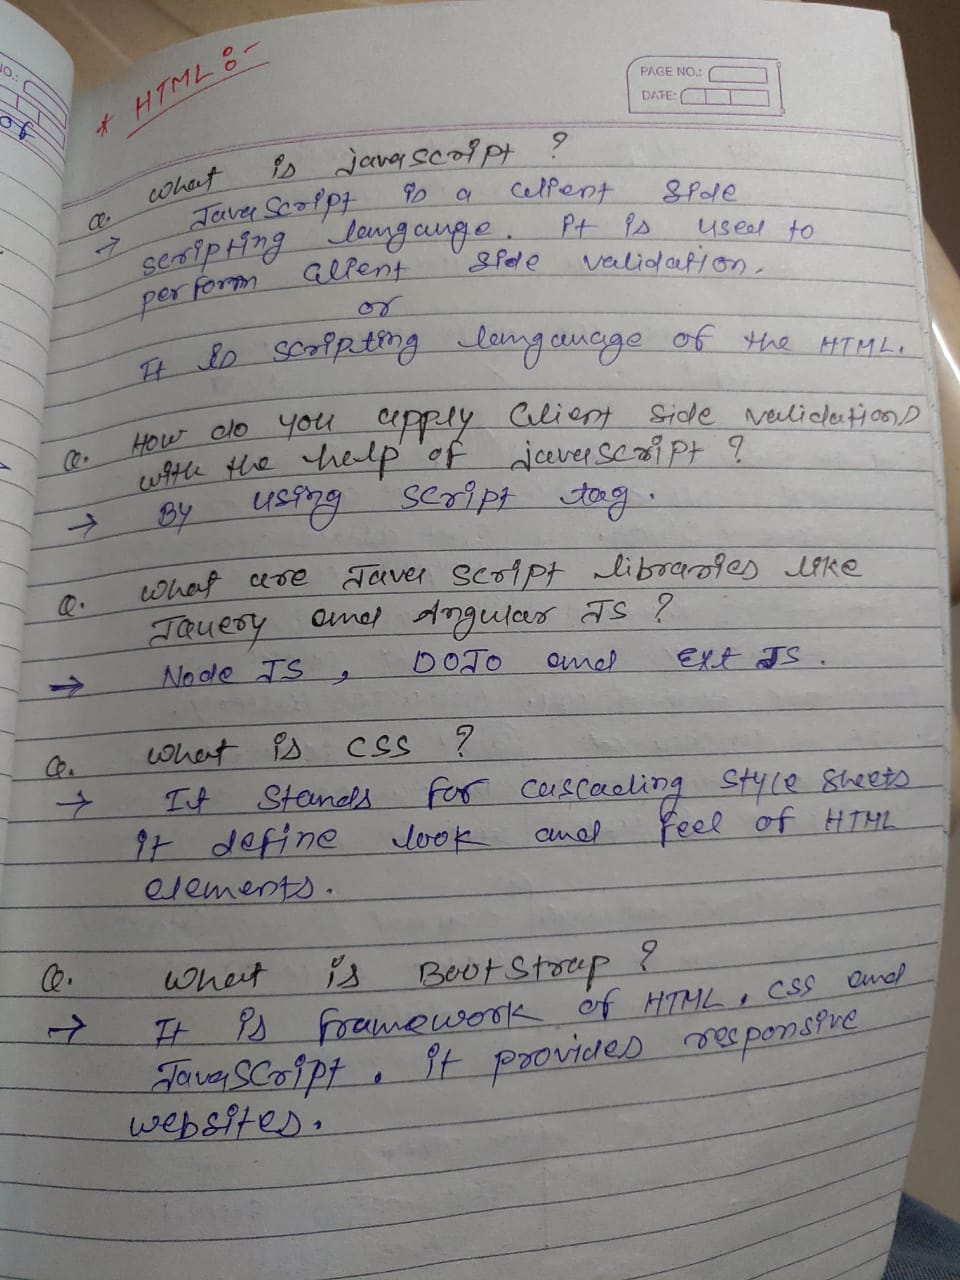 NO.:
of
* HTML :-
PAGE NO.:
DATE:
Q. What is javascript ?
→ JavaScript is a client side
scripting langauge. it is used to
perform client side validation.
or
It is scripting langauage of the HTML.
Q. How do you apply client side validations
with the help of javascript ?
→ By using script tag.
Q. What are Java script libraries like
JQuery and Angular JS ?
→ Node JS, DOJO and Ext JS.
Q. What is CSS ?
→ It Stands for Cascading Style Sheets
it define look and feel of HTML
elements.
Q. What is BootStrap ?
→ It is framework of HTML, CSS and
JavaSCript. it provides responsive
websites.